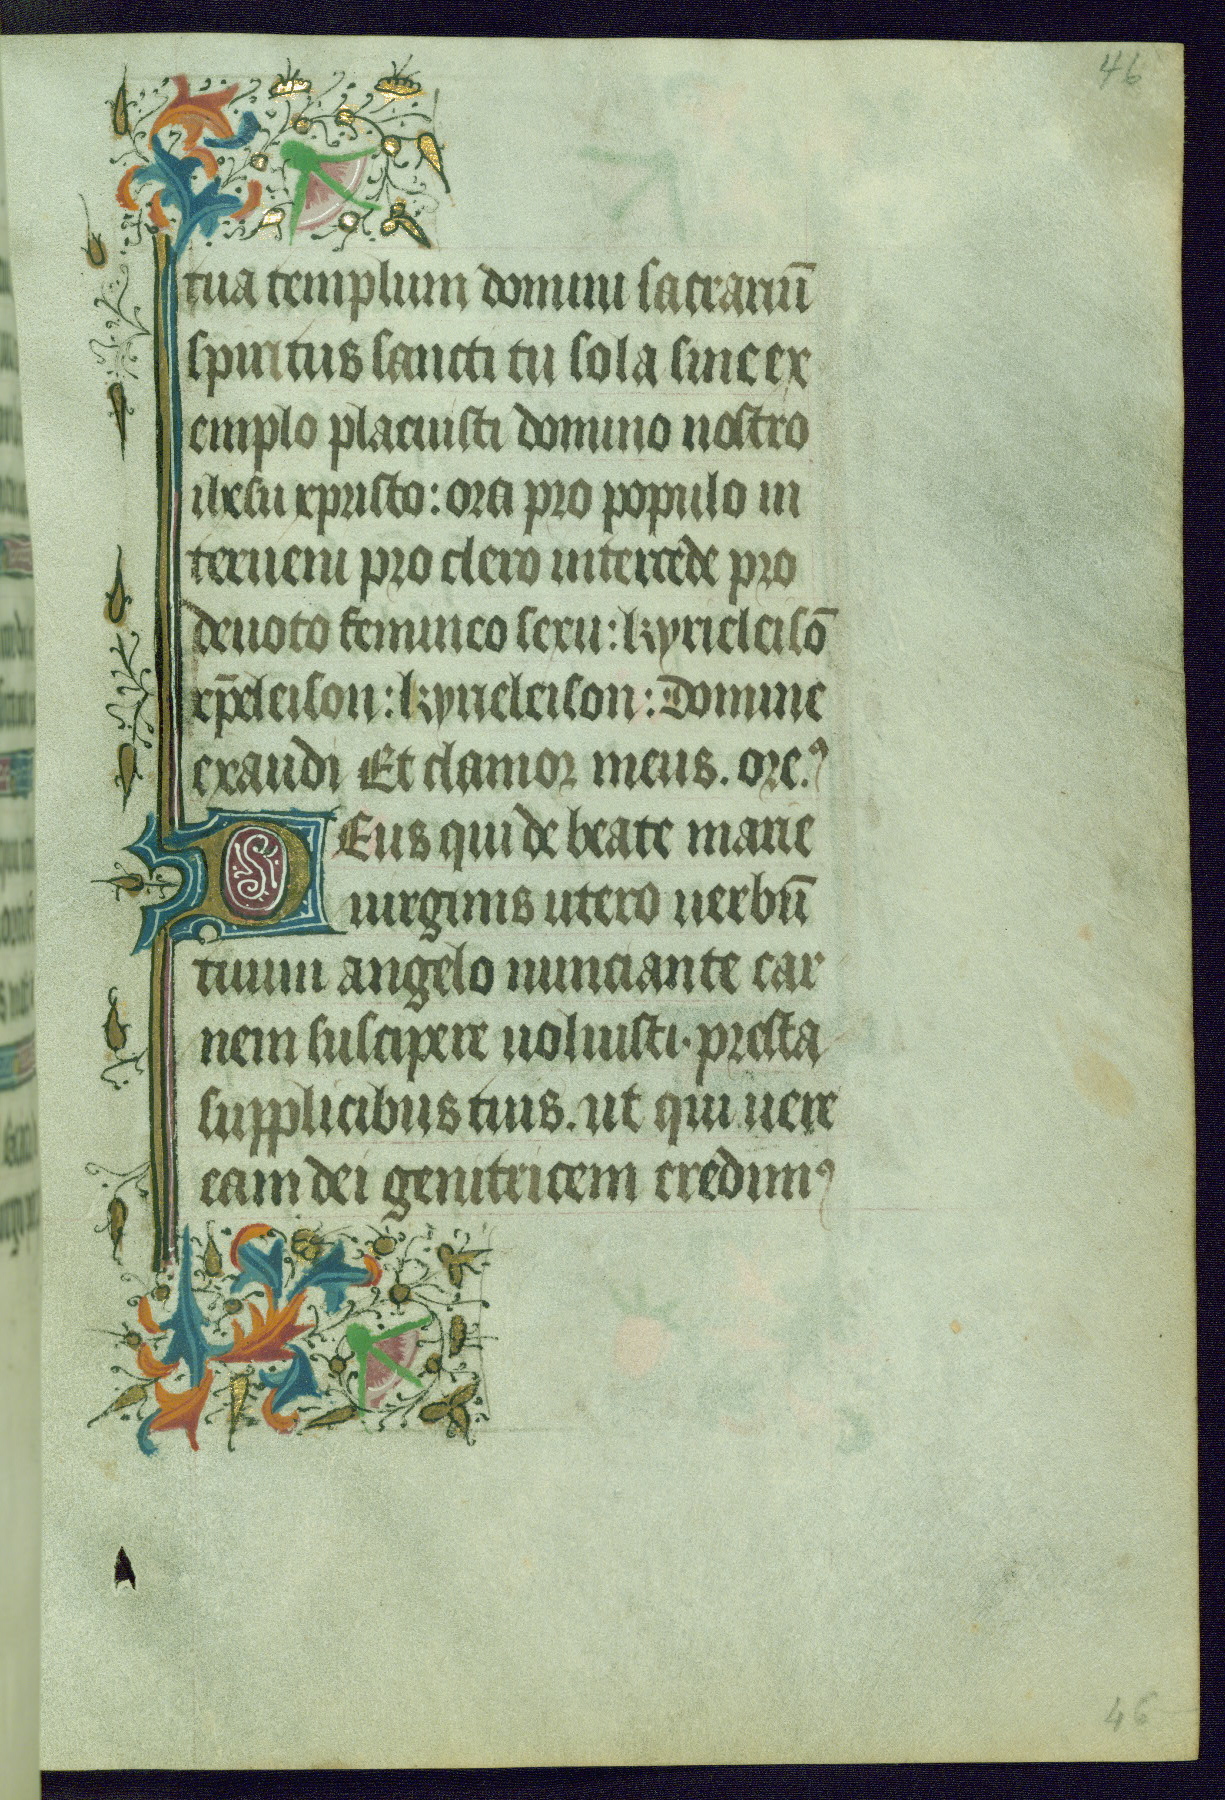 46
tua templum domini sacrariū
spiritus sancti tu sola sine ex
emplo placuisti domino nostro
ihesu xpristo: ora pro populo in
terueni pro clero intercede pro
deuoto femineo sexu: kyrieleisō
xp̄eleison: kyrieleison: Domine
exaudi Et clamor meus. ore.ꝰ
DEus qui de beate marie
uirginis utero uerbū
tuum angelo nunciante car
nem suscipere uoluisti. presta
supplicibus tuis. ut qui uere
eam dei genitricem credimꝰ
46